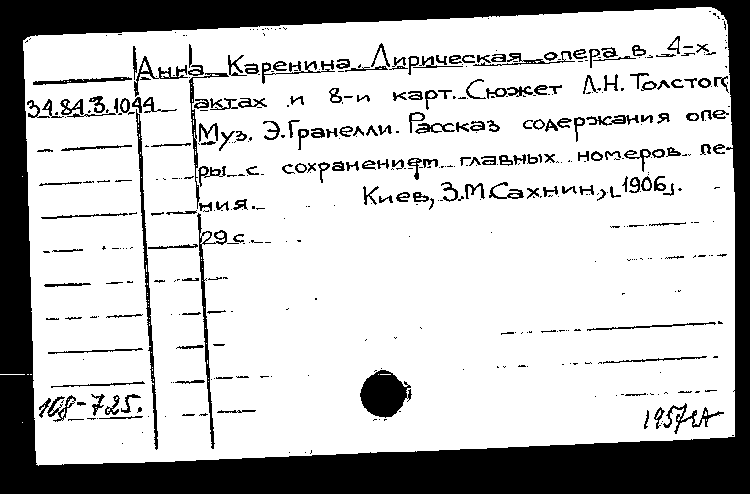 Анна Каренина. Лирическая опера в 4-х
34.84.3.1044 актах и 8-и карт. Сюжет Л.Н. Толстого
Муз. Э.Гранелли. Рассказ содержания опе-
ры с сохранением главных номеров пе-
ния. Киев, З.М.Сахнин, [1906].
29 с.
108-725.